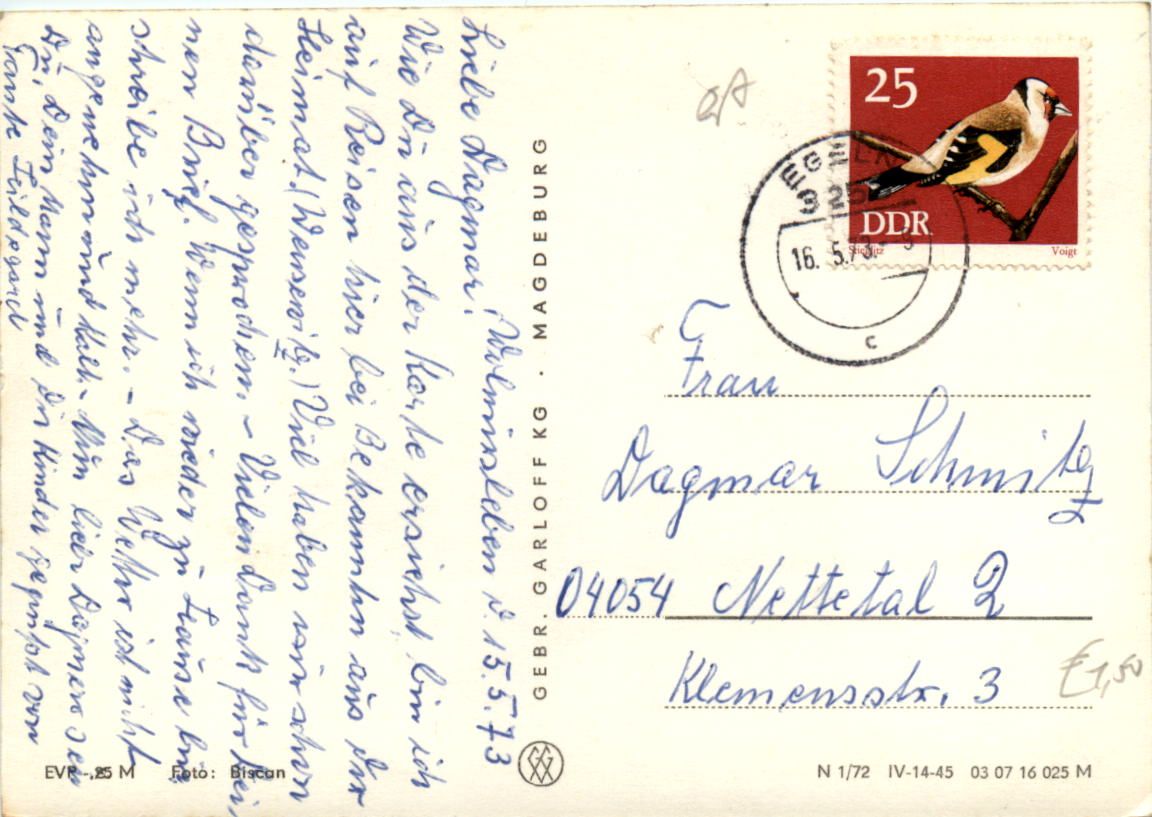 Wolmirsleben d. 15.5.73
Liebe Dagmar!
Wie Du aus der Karte ersiehst, bin ich
auf Reisen hier bei Bekannten aus der
Heimat. Viel haben wir schon
darüber gesprochen. – Vielen Dank für Dei-
nen Brief. Wenn ich wieder zu Hause bin
schreibe ich mehr. – Das Wetter ist nicht
angenehm und kalt. – Nun liebe Dagmar sei
Du, Dein Mann und die Kinder gegrüßt von
Tante Hildegard
GEBR. GARLOFF KG · MAGDEBURG
25
DDR
Stieglitz
Voigt
EGELN
325
16. 5. 73
c
Frau
Dagmar Schmitz
04054 Nettetal 2
Klemensstr. 3
€1,50
EVP -,25 M Foto: Biscan
N 1/72 IV-14-45 03 07 16 025 M